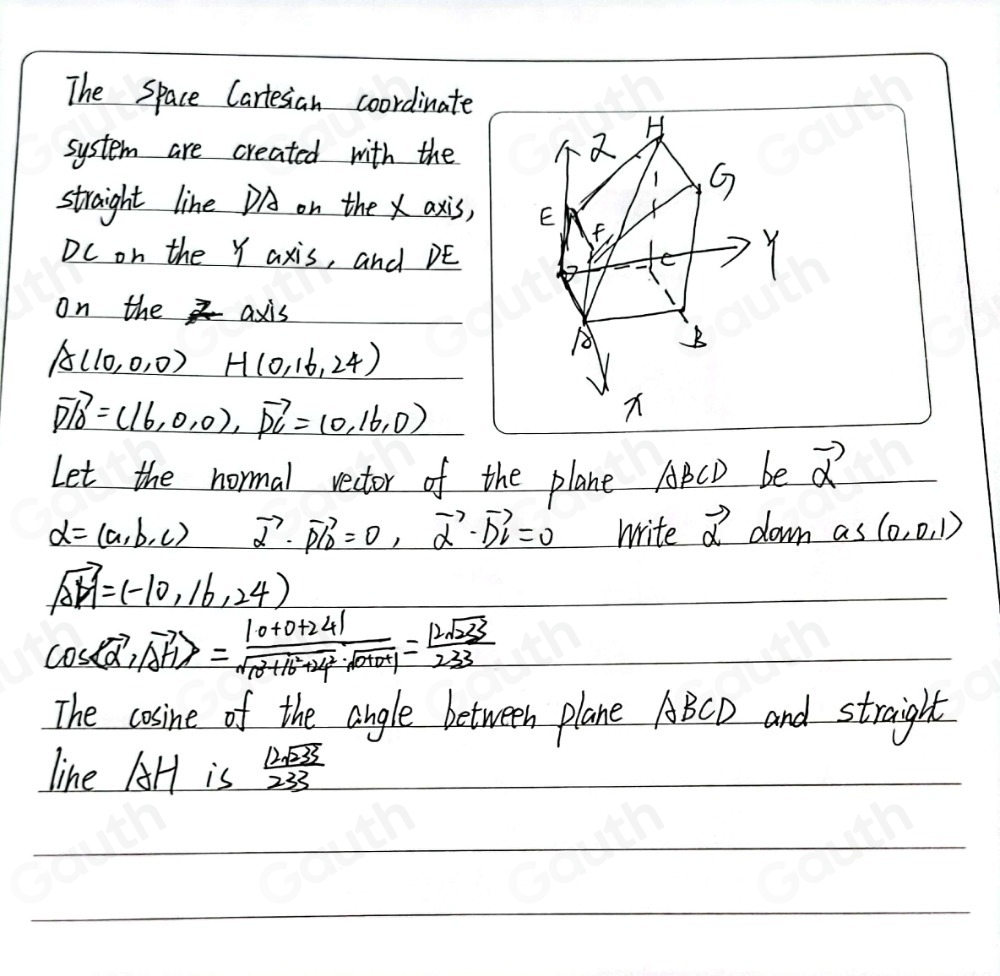 The Space Cartesian coordinate
system are created with the
straight line DA on the X axis,
DC on the Y axis, and DE
on the Z axis
A(10,0,0) H(0,16,24)
DA=(16,0,0), DC=(0,16,0)
Let the normal vector of the plane ABCD be α
α=(a,b,c) α·DA=0, α·DC=0 Write α down as (0,0,1)
AH=(-10,16,24)
cos<α,AH> = |0+0+24| / √10²+16²+24²·√0+0+1 = 12√233 / 233
The cosine of the angle between plane ABCD and straight
line AH is 12√233 / 233
Z
H
G
E
F
Y
D
C
A
B
X
Gauth